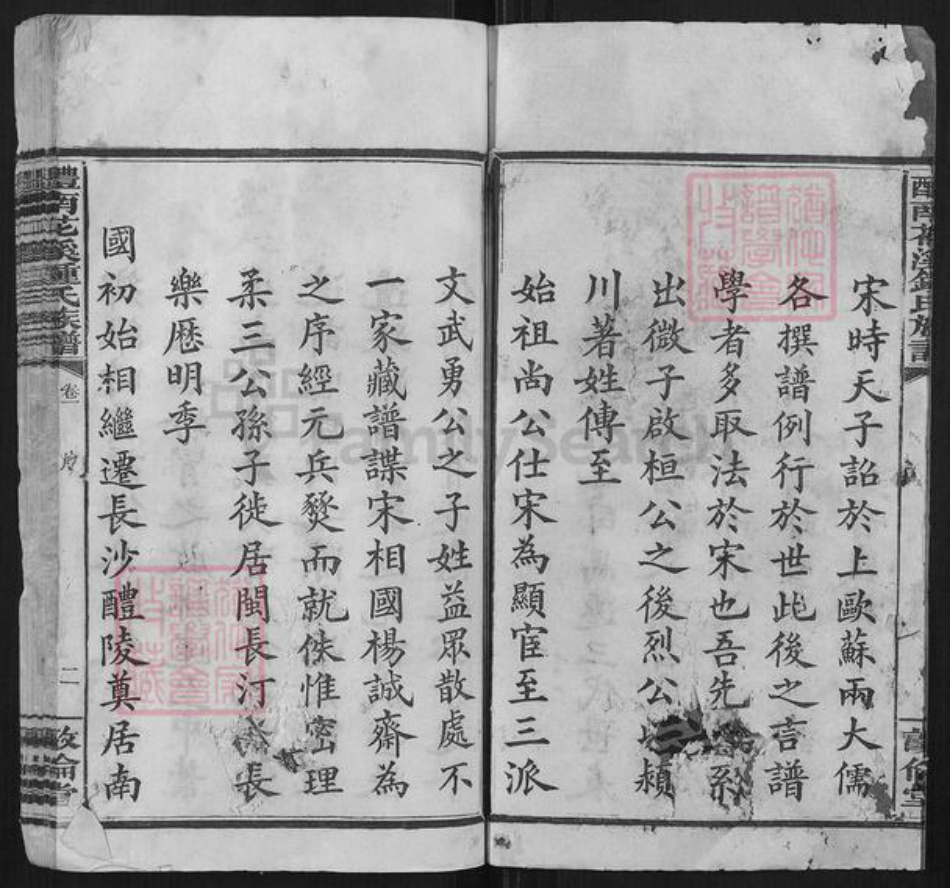 宋時天子詔於上歐蘇兩大儒
各撰譜例行於世此後之言譜
學者多取法於宋也吾先系
出微子啟桓公之後烈公頴
川著姓傳至
始祖尚公仕宋為顯宦至三派
文武勇公之子姓益眾散處不
一家藏譜諜宋相國楊誠齋為
之序經元兵燹而就佚惟密理
柔三公孫子徙居閩長汀長
樂歷明季
國初始相繼遷長沙醴陵奠居南
醴南花溪鍾氏族譜
卷一
序
二
敦倫堂
FamilySearch